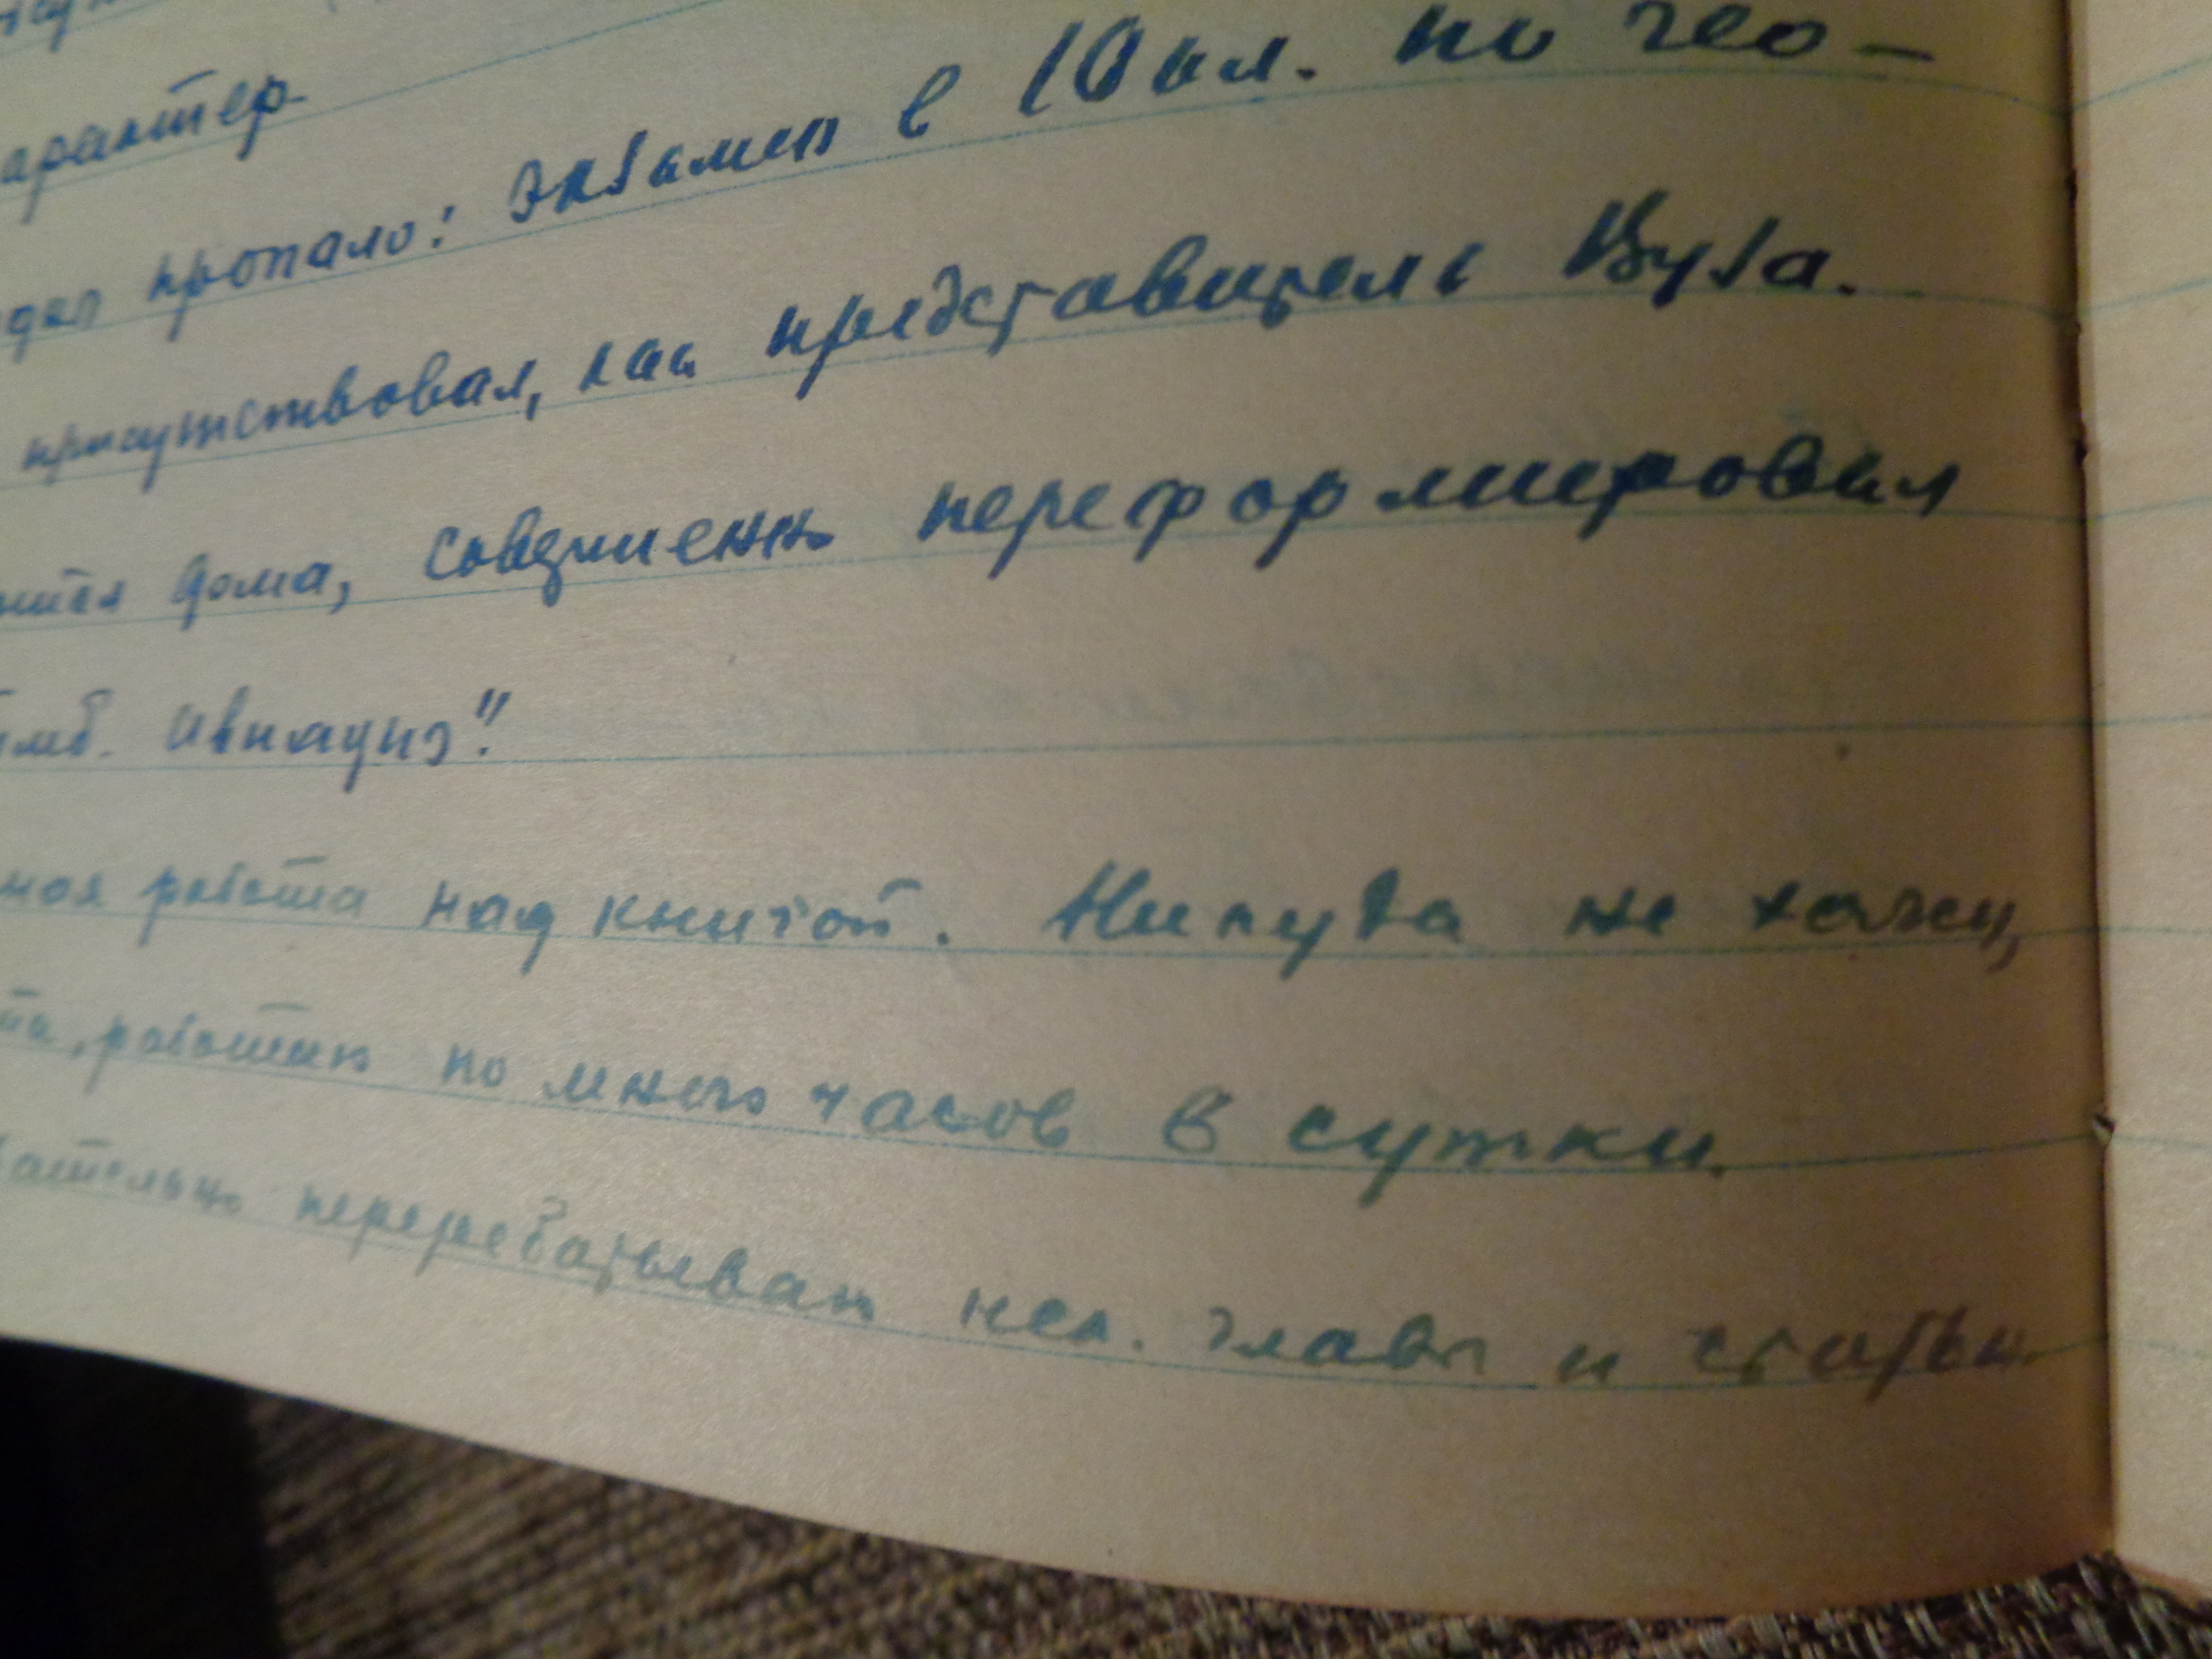 арактер
пропало: экзамен в 10 кл. по гео-
присутствовал, как представитель Вуза.
дома, совершенно переформировал
моя работа над книгой. Никуда не хожу,
работаю по много часов в сутки.
перерабатываю нек. главы и статьи.